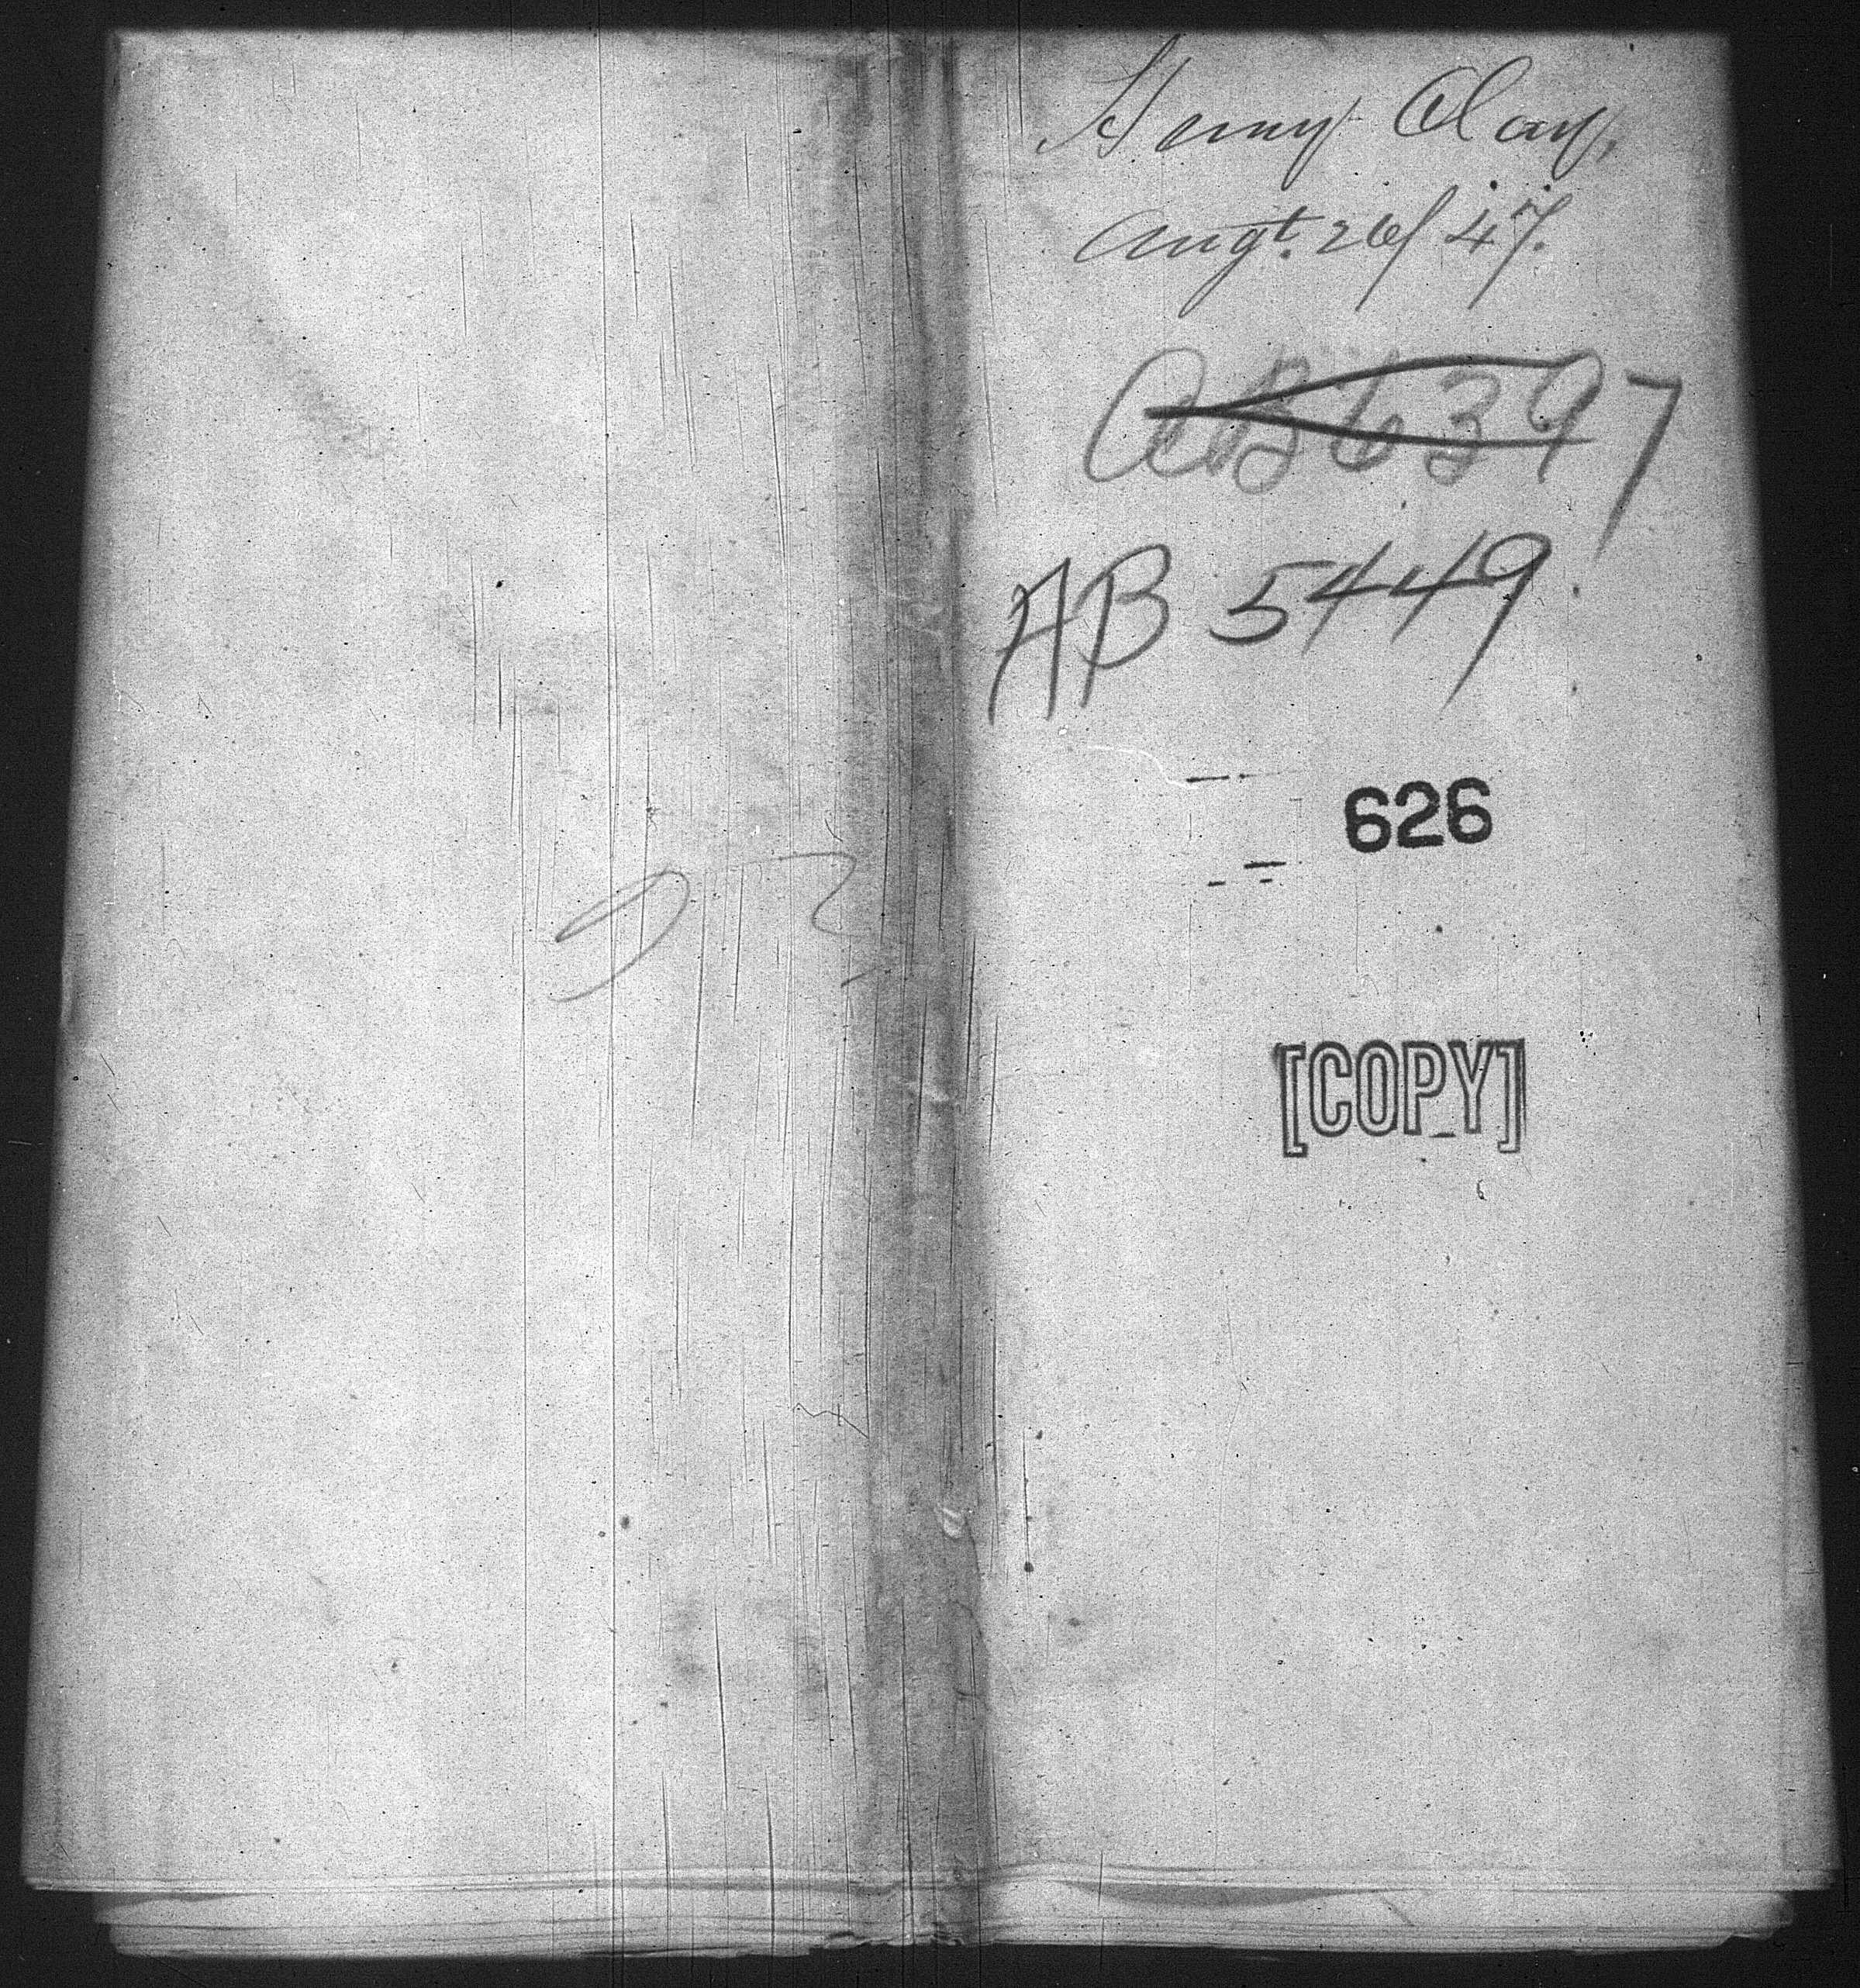 Henny Clay,
Augt. 26/47.
AB6397
AB 5449.
626
[COPY]